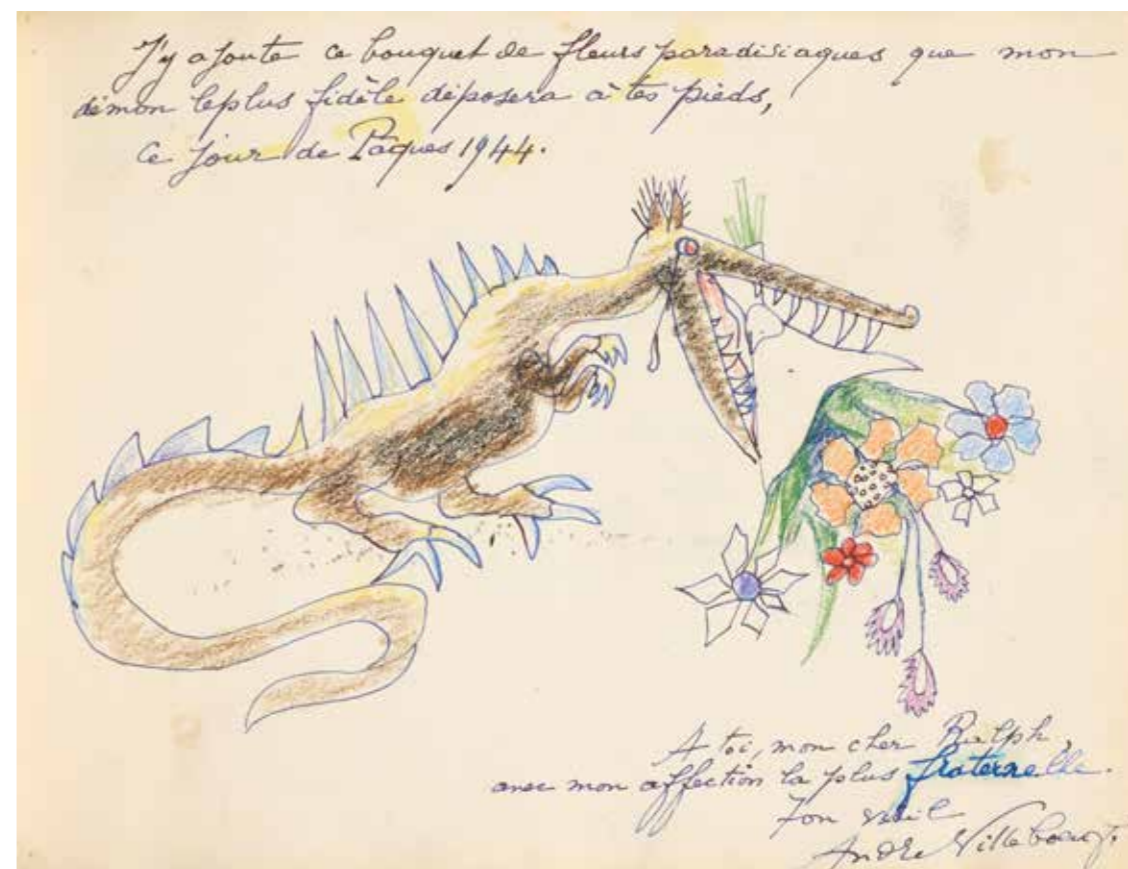 J'y ajoute ce bouquet de fleurs paradisiaques que mon
démon le plus fidèle déposera à tes pieds,
Ce jour de Pâques 1944.
A toi, mon cher Ralph,
avec mon affection la plus fraternelle.
Ton vieil
André Villeboeuf.